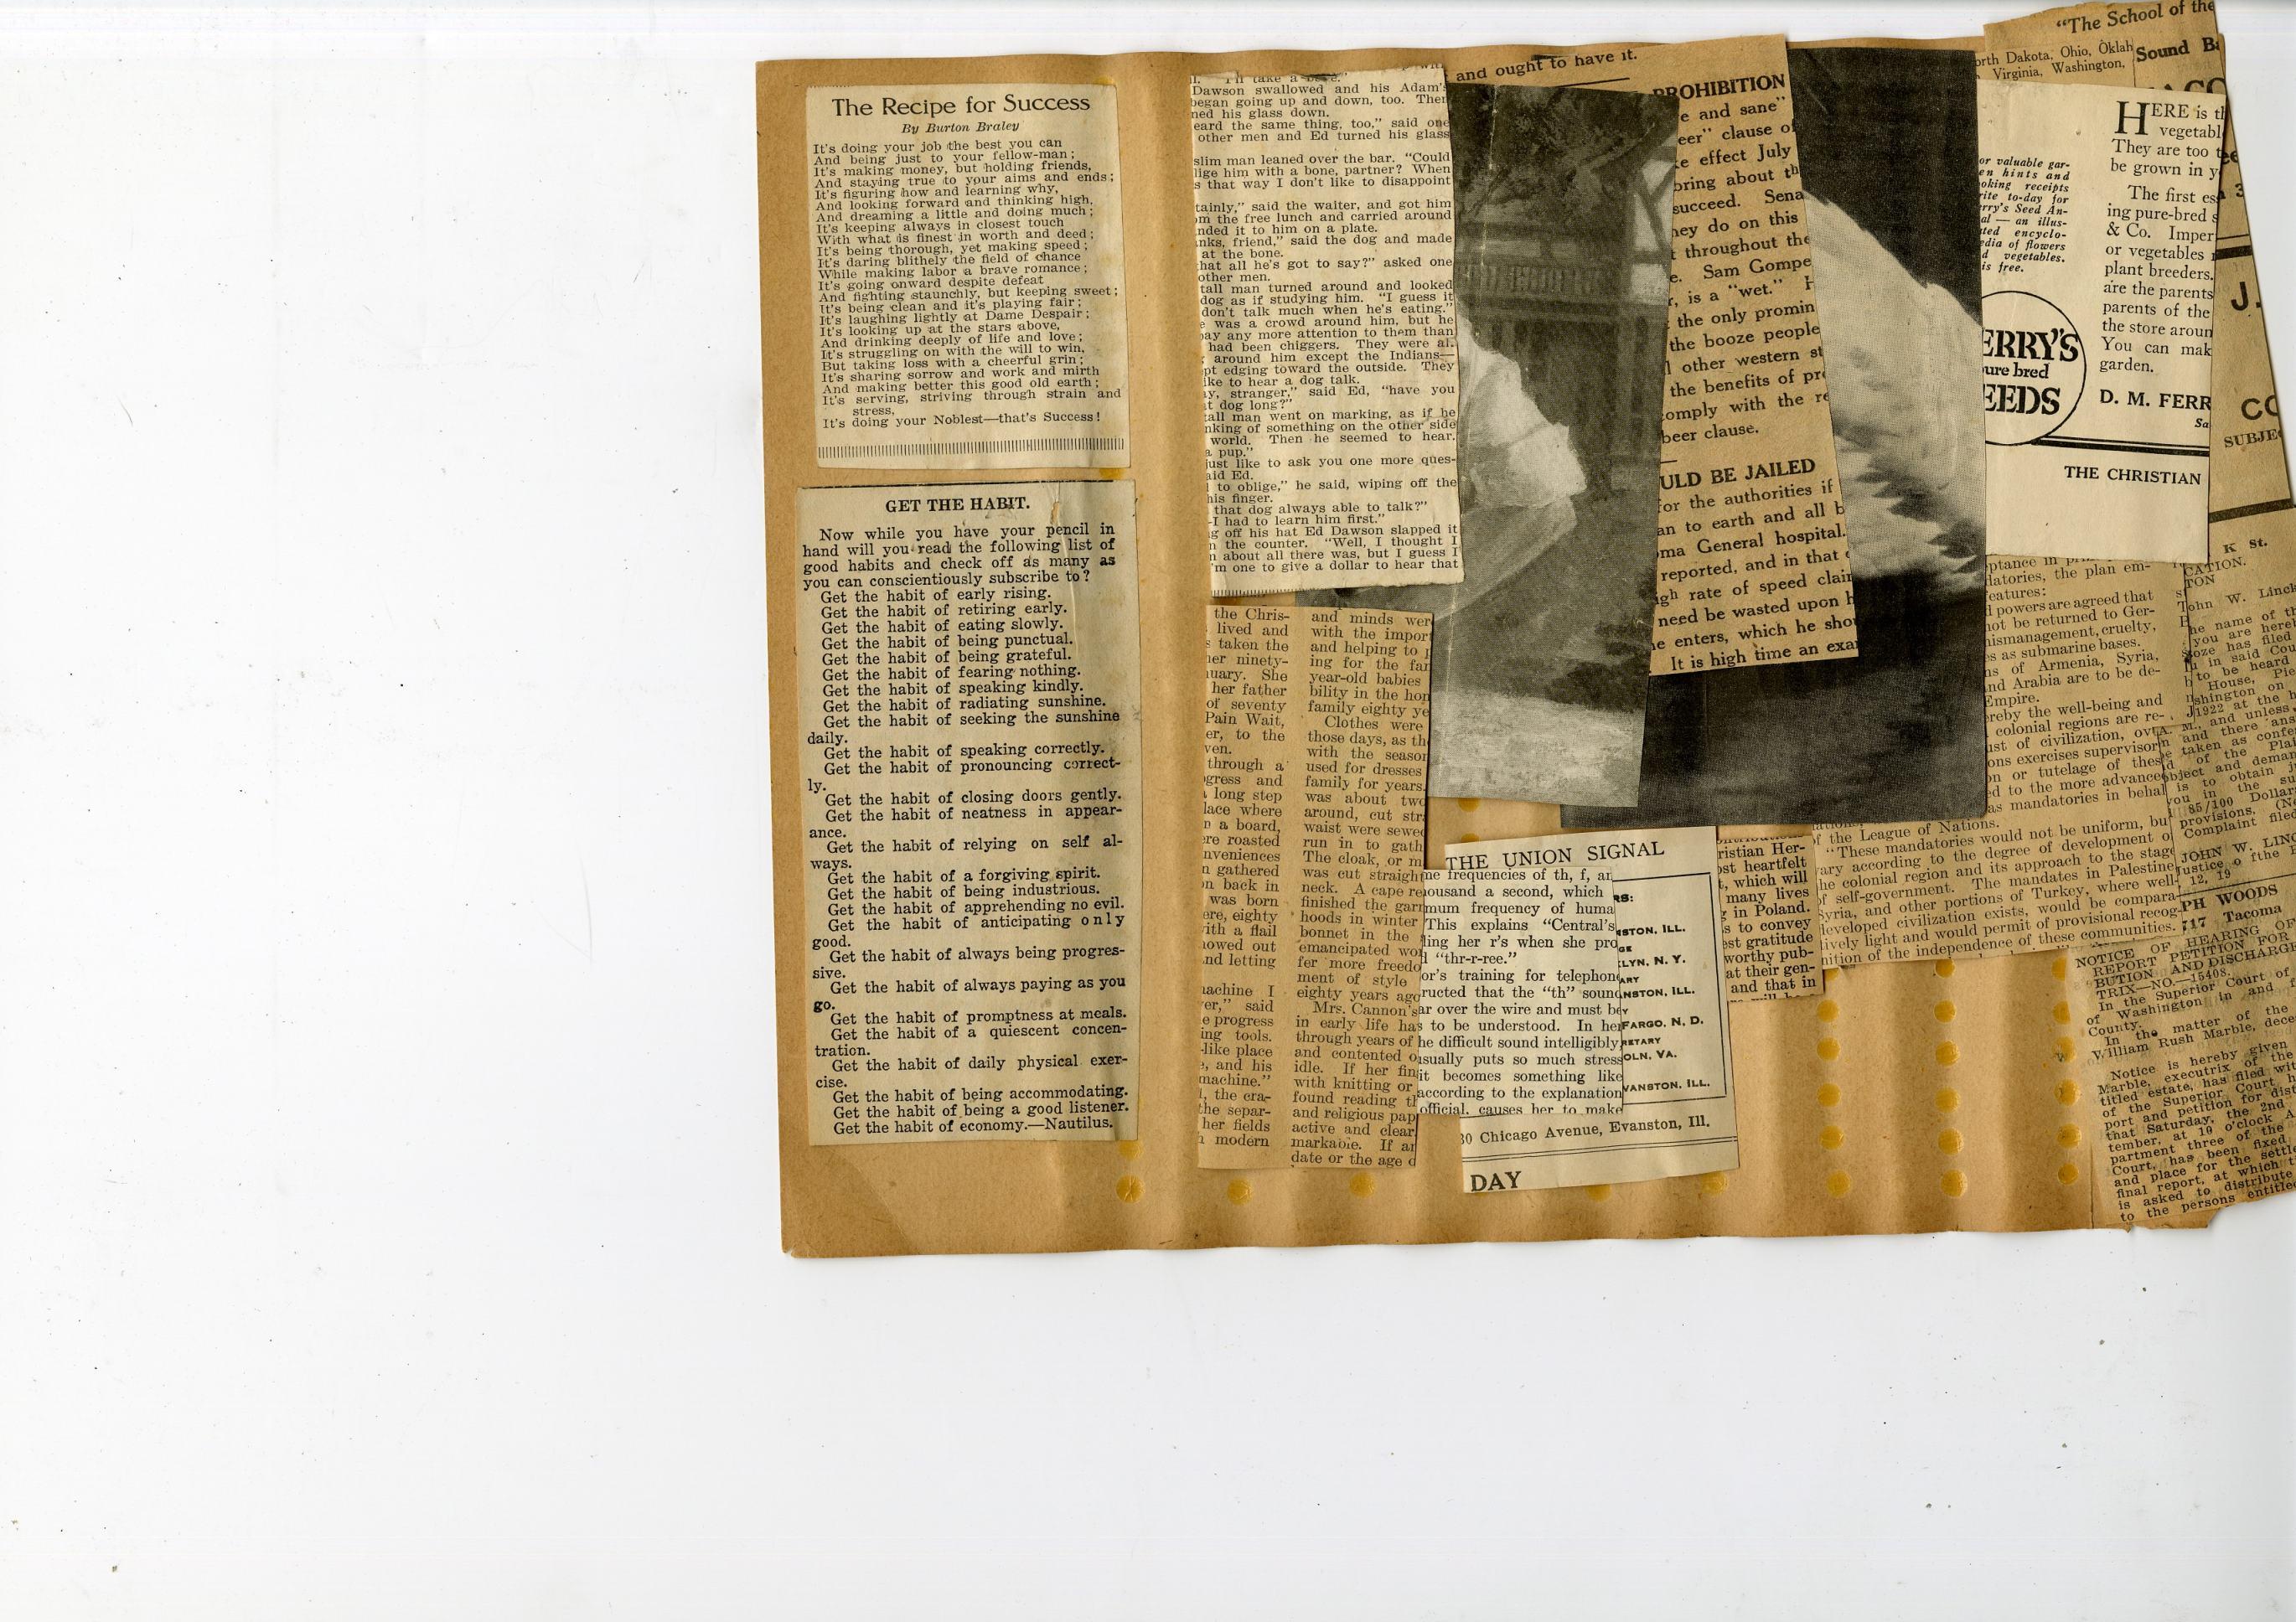 The Recipe for Success
By Burton Braley
It's doing your job the best you can
And being just to your fellow-man;
It's making money, but holding friends,
And staying true to your aims and ends;
It's figuring how and learning why,
And looking forward and thinking high,
And dreaming a little and doing much;
It's keeping always in closest touch
With what is finest in worth and deed;
It's being thorough, yet making speed;
It's daring blithely the field of chance
While making labor a brave romance;
It's going onward despite defeat
And fighting staunchly, but keeping sweet;
It's being clean and it's playing fair;
It's laughing lightly at Dame Despair;
It's looking up at the stars above,
And drinking deeply of life and love;
It's struggling on with the will to win,
But taking loss with a cheerful grin;
It's sharing sorrow and work and mirth
And making better this good old earth;
It's serving, striving through strain and
stress,
It's doing your Noblest—that's Success!
GET THE HABIT.
Now while you have your pencil in
hand will you read the following list of
good habits and check off as many as
you can conscientiously subscribe to?
Get the habit of early rising.
Get the habit of retiring early.
Get the habit of eating slowly.
Get the habit of being punctual.
Get the habit of being grateful.
Get the habit of fearing nothing.
Get the habit of speaking kindly.
Get the habit of radiating sunshine.
Get the habit of seeking the sunshine
daily.
Get the habit of speaking correctly.
Get the habit of pronouncing correct-
ly.
Get the habit of closing doors gently.
Get the habit of neatness in appear-
ance.
Get the habit of relying on self al-
ways.
Get the habit of a forgiving spirit.
Get the habit of being industrious.
Get the habit of apprehending no evil.
Get the habit of anticipating only
good.
Get the habit of always being progres-
sive.
Get the habit of always paying as you
go.
Get the habit of promptness at meals.
Get the habit of a quiescent concen-
tration.
Get the habit of daily physical exer-
cise.
Get the habit of being accommodating.
Get the habit of being a good listener.
Get the habit of economy.—Nautilus.
Dawson swallowed and his Adam's
began going up and down, too. Then
ned his glass down.
eard the same thing, too," said one
other men and Ed turned his glass
slim man leaned over the bar. "Could
lige him with a bone, partner? When
s that way I don't like to disappoint
tainly," said the waiter, and got him
om the free lunch and carried around
nded it to him on a plate.
nks, friend," said the dog and made
at the bone.
hat all he's got to say?" asked one
other men.
tall man turned around and looked
dog as if studying him. "I guess it
don't talk much when he's eating."
e was a crowd around him, but he
pay any more attention to them than
had been chiggers. They were al.
around him except the Indians—
pt edging toward the outside. They
ike to hear a dog talk.
y, stranger," said Ed, "have you
t dog long?"
tall man went on marking, as if he
nking of something on the other side
world. Then he seemed to hear.
a pup."
just like to ask you one more ques-
aid Ed.
to oblige," he said, wiping off the
his finger.
that dog always able to talk?"
—I had to learn him first."
g off his hat Ed Dawson slapped it
n the counter. "Well, I thought I
n about all there was, but I guess I
'm one to give a dollar to hear that
the Chris-
lived and
s taken the
her ninety-
nuary. She
her father
of seventy
Pain Wait,
er, to the
ven.
through a
gress and
a long step
lace where
n a board,
ere roasted
nveniences
n gathered
on back in
was born
ere, eighty
ith a flail
nowed out
nd letting
machine I
er," said
e progress
ing tools.
-like place
e, and his
machine."
l, the cra-
the separ-
her fields
n modern
and minds wer
with the impor
and helping to
ing for the far
year-old babies
bility in the hon
family eighty ye
Clothes were
those days, as th
with the season
used for dresses
family for years.
was about two
around, cut str
waist were sewe
run in to gath
The cloak, or m
was cut straigh
neck. A cape re
finished the garr
hoods in winter
bonnet in the
emancipated wo
fer more freedo
ment of style
eighty years ago
Mrs. Cannon's
in early life has
through years of
and contented o
idle. If her fin
with knitting or
found reading th
and religious pap
active and clear
markable. If an
date or the age o
and ought to have it.
PROHIBITION
e and sane"
eer" clause of
e effect July
bring about th
succeed. Sena
hey do on this
t throughout the
e. Sam Gompe
r, is a "wet." H
the only promin
the booze people
l other western st
the benefits of pr
omply with the re
beer clause.
ULD BE JAILED
for the authorities if
an to earth and all b
oma General hospital.
reported, and in that
igh rate of speed clair
need be wasted upon h
e enters, which he sho
It is high time an exa
THE UNION SIGNAL
me frequencies of th, f, an
nousand a second, which
mum frequency of huma
This explains "Central's
ling her r's when she pro
d "thr-r-ree."
or's training for telephon
ructed that the "th" sound
ar over the wire and must be
s to be understood. In her
he difficult sound intelligibly
usually puts so much stress
it becomes something like
according to the explanation
official, causes her to make
RS:
NSTON, ILL.
GE
LYN, N. Y.
ARY
NSTON, ILL.
Y
FARGO, N. D.
RETARY
OLN, VA.
VANSTON, ILL.
30 Chicago Avenue, Evanston, Ill.
DAY
ristian Her-
ost heartfelt
t, which will
many lives
g in Poland.
s to convey
est gratitude
worthy pub-
at their gen-
and that in
"The School of the
orth Dakota, Ohio, Oklah
Virginia, Washington,
Sound Ba
HERE is th
vegetabl
They are too
be grown in y
The first es
ing pure-bred s
& Co. Imper
or vegetables
plant breeders.
are the parents
parents of the
the store aroun
You can mak
garden.
D. M. FERR
Sa
or valuable gar-
en hints and
oking receipts
rite to-day for
erry's Seed An-
al — an illus-
ated encyclo-
dia of flowers
d vegetables.
is free.
ERRY'S
ure bred
EEDS
THE CHRISTIAN
J.
CO
SUBJE
latories, the plan em-
eatures:
d powers are agreed that
not be returned to Ger-
nismanagement, cruelty,
es as submarine bases.
ns of Armenia, Syria,
nd Arabia are to be de-
Empire.
ereby the well-being and
colonial regions are re-
ust of civilization, over
ons exercises supervisor
on or tutelage of these
ed to the more advance
as mandatories in behal
f the League of Nations.
"These mandatories would not be uniform, bu
vary according to the degree of development o
the colonial region and its approach to the stage
of self-government. The mandates in Palestine,
Syria, and other portions of Turkey, where well-
developed civilization exists, would be compara-
tively light and would permit of provisional recog-
nition of the independence of these communities.
K St.
CATION.
TON
John W. Linck
he name of th
you are hereb
oze has filed
in said Cou
to be heard
House, Pie
shington on
1922 at the h
M. and unless
and there ans
taken as confe
of the Plai
bject and deman
is to obtain j
you in the su
85/100 Dollar
provisions. (No
Complaint filed
JOHN W. LINC
Justice o fthe P
12, 19
PH WOODS
717 Tacoma
NOTICE OF HEARING OF
REPORT PETITION FOR
BUTION AND DISCHARGE
TRIX—NO.—15408.
In the Superior Court of
of Washington in and f
County.
In the matter of the
William Rush Marble, dece
Notice is hereby given
Marble, executrix of the
titled estate, has filed wit
of the Superior Court h
port and petition for dist
that Saturday, the 2nd
tember, at 10 o'clock A
partment three of the
Court, has been fixed
and place for the settle
final report, at which t
is asked to distribute
to the persons entitled